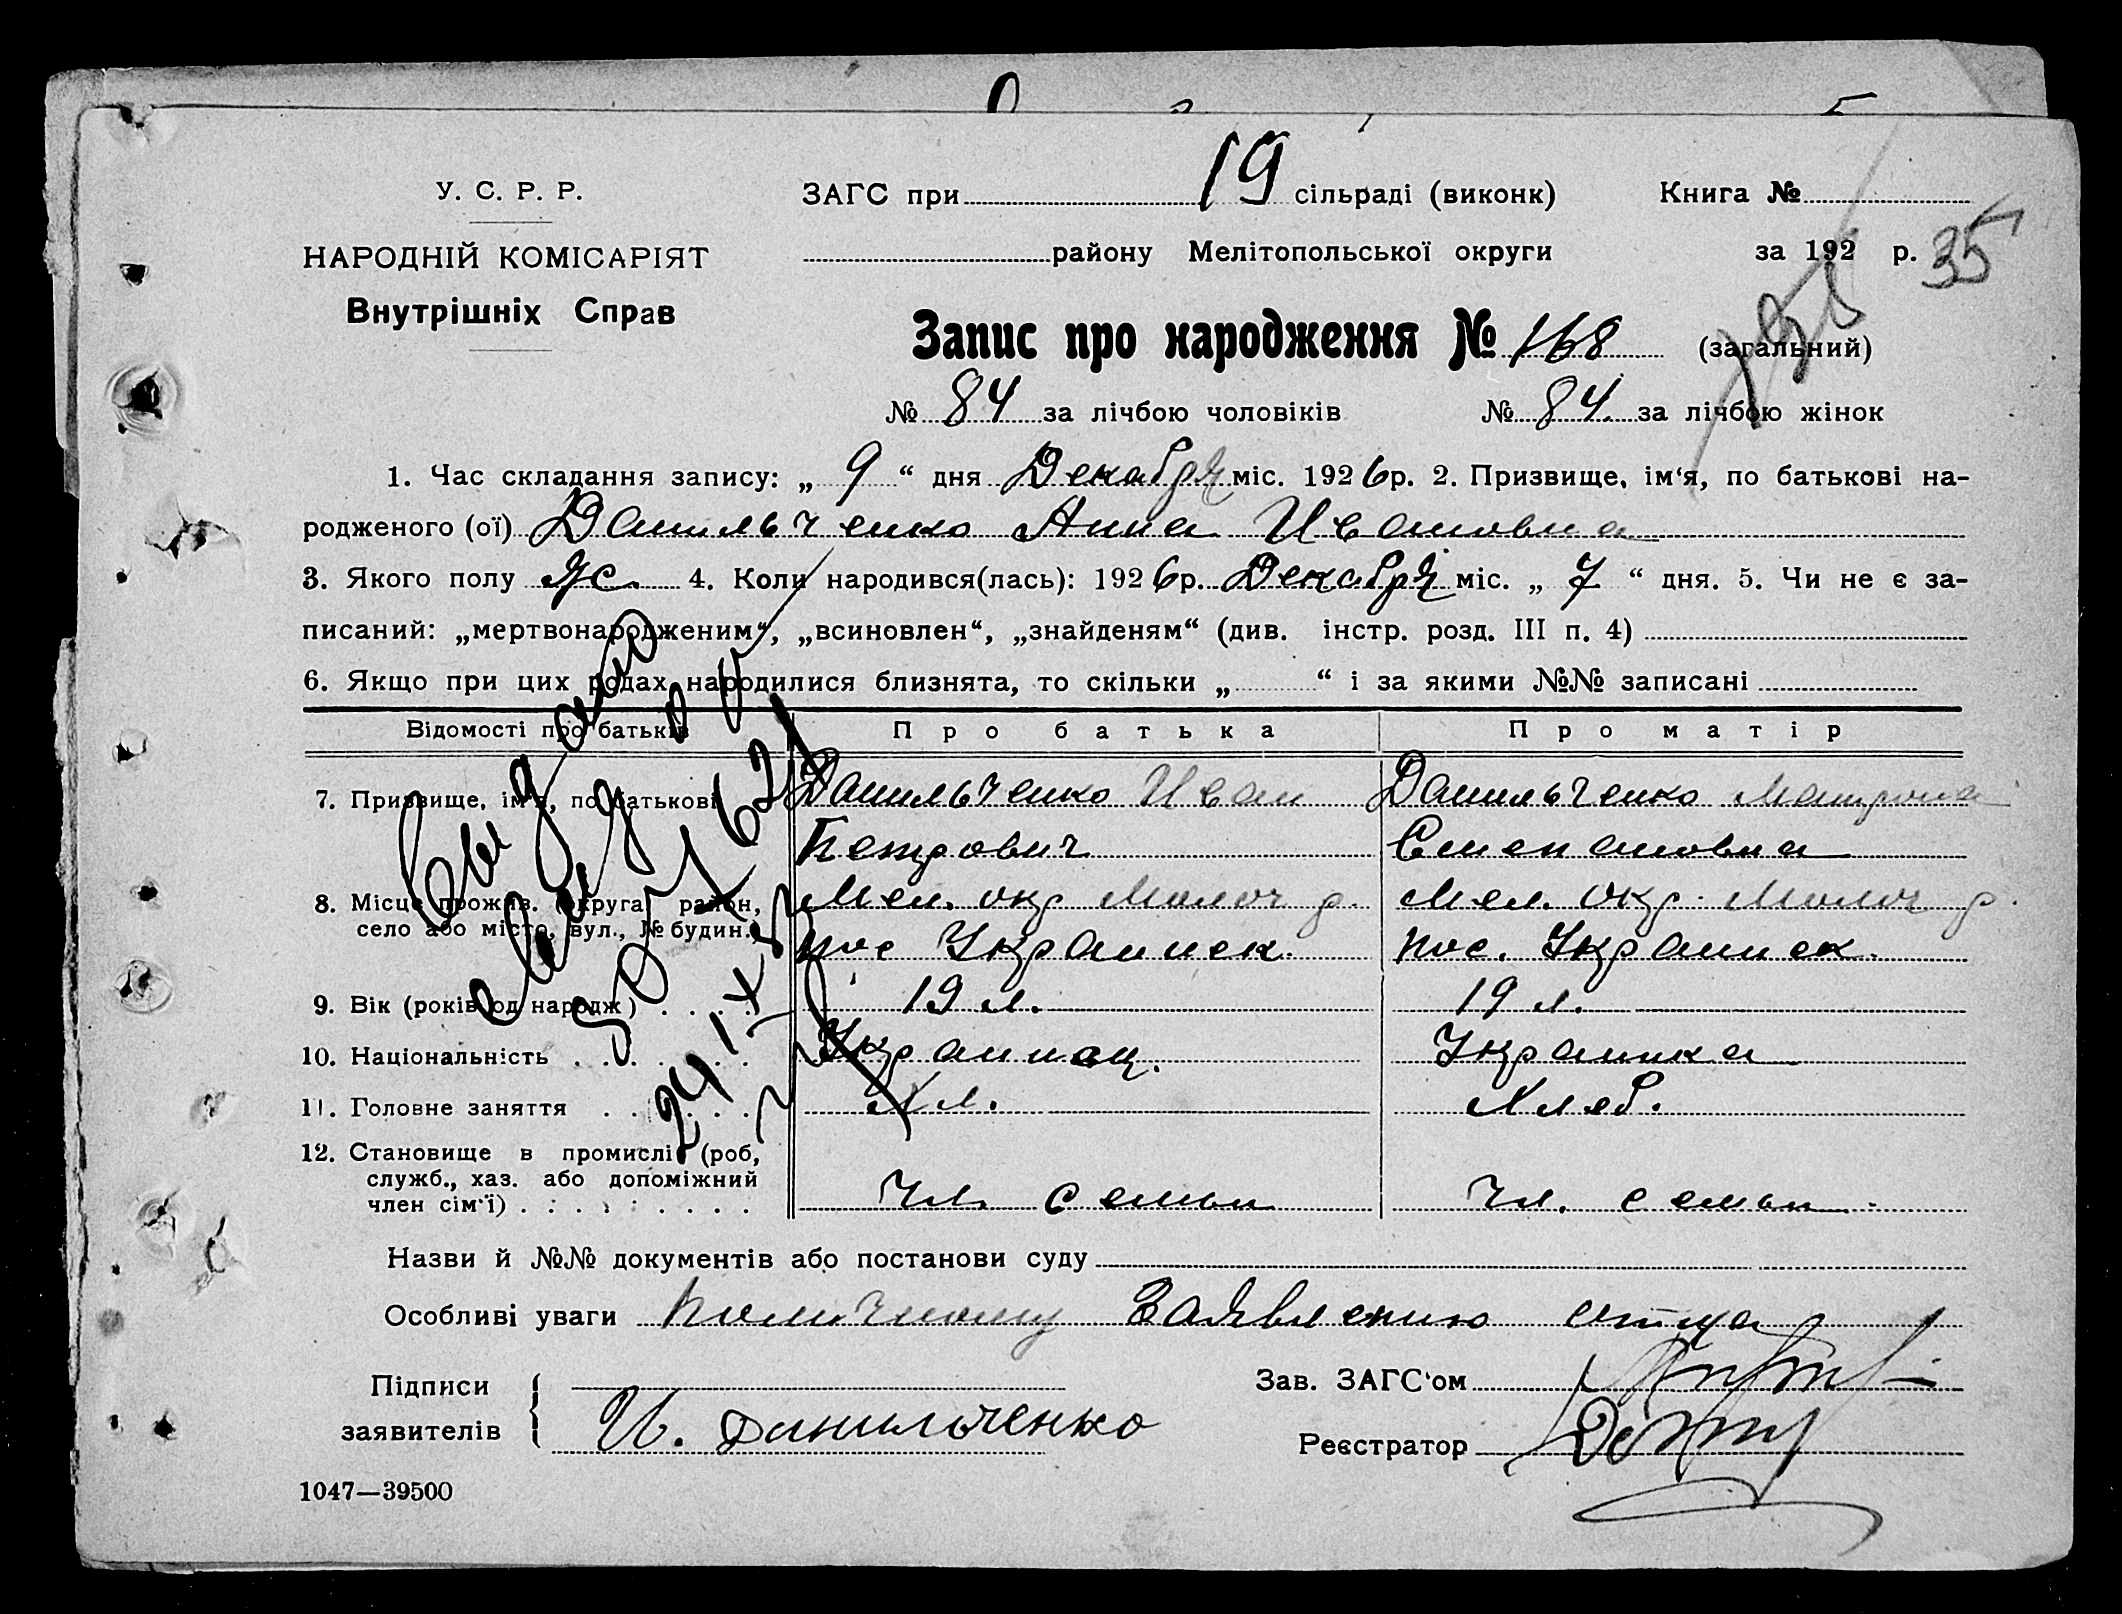 У. С. Р. Р.
НАРОДНІЙ КОМІСАРІЯТ
Внутрішніх Справ
ЗАГС при 19 сільраді (виконк)
Книга №
району Мелітопольської округи
за 192 р. 35
Запис про народження № 168 (загальний)
№ 84 за лічбою чоловіків № 84 за лічбою жінок
1. Час складання запису: „ 9 “ дня Декабря міс. 1926 р. 2. Призвище, ім‘я, по батькові на-
родженого (ої) Данильченко Анна Ивановна
3. Якого полу ж. 4. Коли народився(лась): 1926 р. Декабря міс. „ 7 “ дня. 5. Чи не є за-
писаний: „мертвонародженим“, „всиновлен“, „знайденям“ (див. інстр. розд. III п. 4)
6. Якщо при цих родах народилися близнята, то скільки „ “ і за якими №№ записані
Відомості про батьків Про батька Про матір
7. Призвище, ім‘я, по батькові Данильченко Иван Данильченко Матрона
Петрович Степановна
8. Місце прожив. (округа, район, Мел. окр Молоч р. Мел. окр. Молоч р.
село або місто, вул., № будин.) пос Украинск. пос. Украинск.
9. Вік (років од народж) 19 л. 19 л.
10. Національність Украинец. Украинка
11. Головне заняття Хл. Хлеб.
12. Становище в промислі (роб,
служб., хаз. або допоміжний
член сім‘ї) чл. семьи чл. семьи
Назви й №№ документів або постанови суду
Особливі уваги по личному заявлению отца
Підписи
заявителів И. Данильченко
Зав. ЗАГС‘ом
Реєстратор
1047—39500